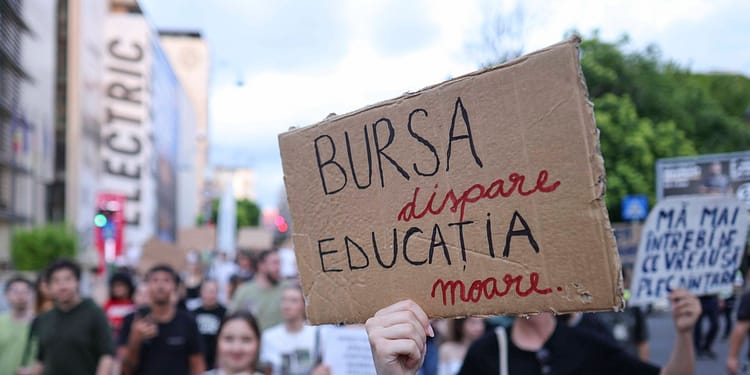 ELECTRIC
BURSA
dispare
EDUCAȚIA
moare.
MĂ MAI
ÎNTREBI DE
CE VREAU SĂ
PLEC DIN ȚARĂ